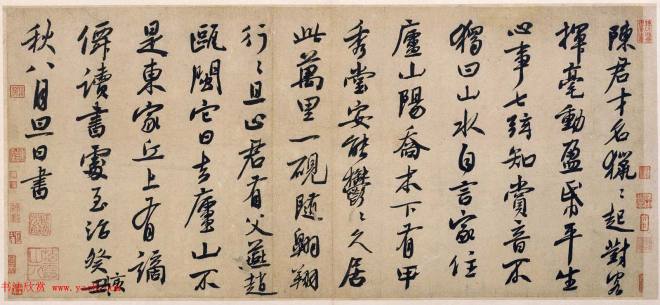 陳君才名獵〻起對客
揮毫動盈帋平生
心事七弦知賞音不
獨曰山水自言家住
廬山陽喬木下有甲
秀堂安能鬱〻久居
此萬里一硯隨翱翔
行〻且止君有父燕趙
甌閩它日去廬山不
是東家丘上有謫
僊讀書處至治癸亥
秋八月旦日書
书法欣赏